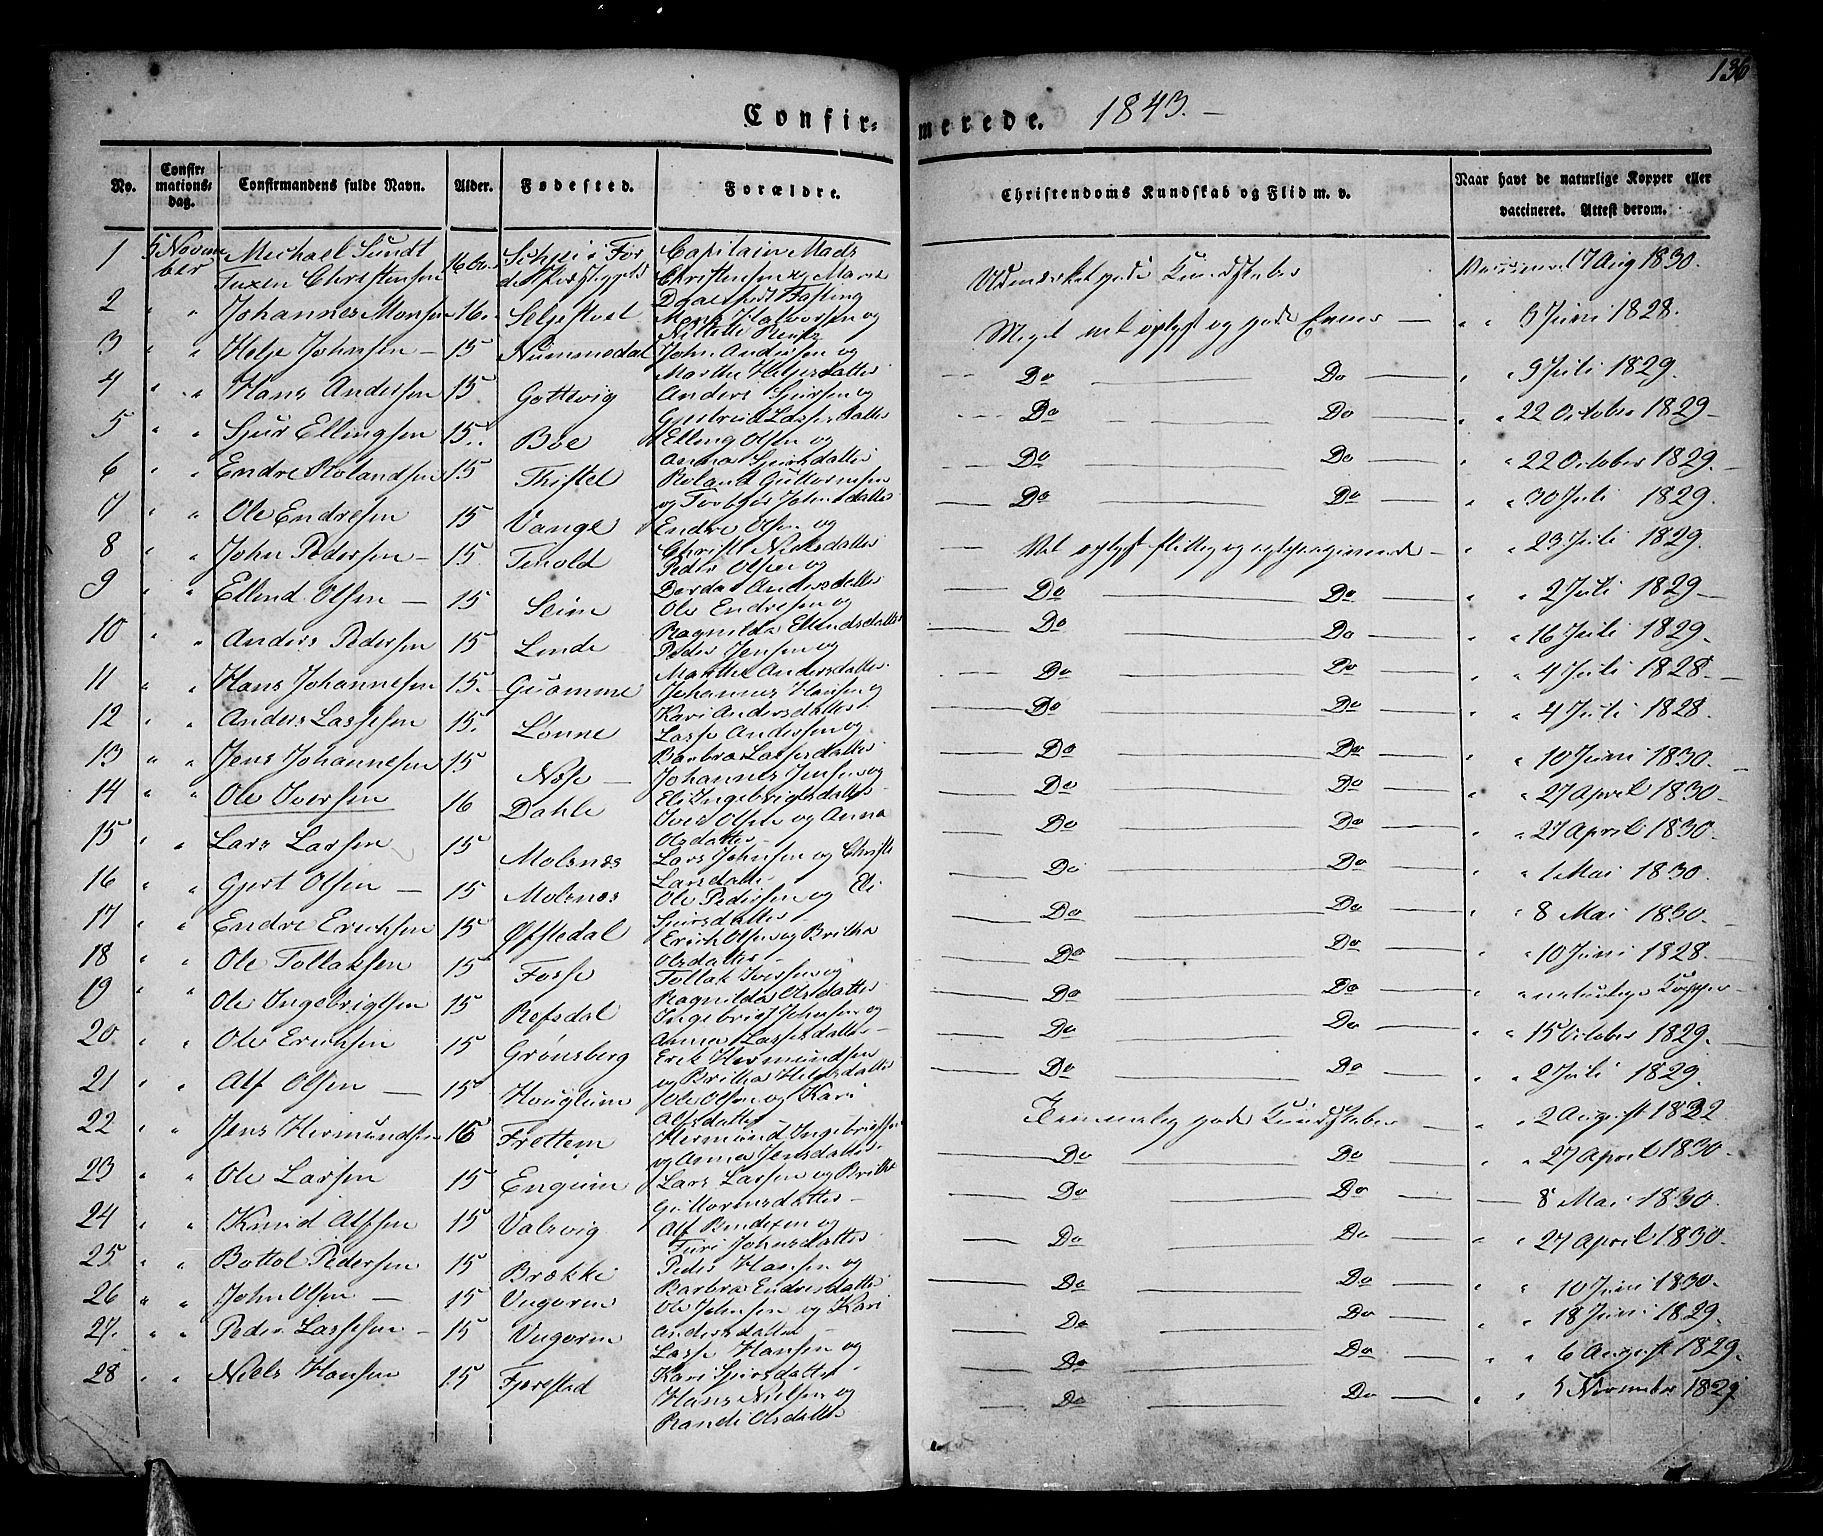 136
Confir= merede. 1843.
No. Confir=mations=dag. Confirmandens fulde Navn. Alder. Fødested. Forældre. Christendoms Kundskab og Flid m. v. Naar havt de naturlige Kopper eller vaccineret. Attest derom.
1 5 Novem ber Michael Sundt Tuxen Christensen 16 i Før Capitain Mads Christensen og Maren Fasting Udmærket gode Kundskaber 17 Aug 1830.
2 " " Johannes Monsen 16. Seljestvet Mons Halvorsen og Meget vel oplyst og gode Evner " " 5 Juni 1828.
3 " " Helje Johnsen 15 Nummedal John Andersen og Marthe Heljesdatter Do Do " " 9 Juli 1829.
4 " " Hans Andersen 15 Gottevig Anders Sjursen og Lassesdatter Do Do " " 22 October 1829
5 " " Sjur Ellingsen 15. Boe Elling Olsen og Anna Sjursdatter Do Do " " 22 October 1829.
6 " " Endre Rolandsen 15 Thistel Roland Guttormsen og Torbjør Johnsdatter Do Do " " 30 Juli 1829.
7 " " Ole Endresen 15 Vange Endre Olsen og Christi Nielsdatter Vel oplyst flittig og " " 23 Juli 1829.
8 " " John Pedersen 15 Tenold Peder Olsen og Dorda Andersdatter Do Do " " 2 Juli 1829
9 " " Ellend Olsen 15 Seim Ole Endresen og Ragnilda Ellendsdatter Do Do " " 16 Juli 1829.
10 " " Anders Pedersen 15 Linde Peder Jensen og Marthe Andersdatter Do Do " " 4 Juli 1828.
11 " " Hans Johannesen 15. Grømme Johannes Hansen og Kari Andersdatter Do Do " " 4 Juli 1828.
12 " " Anders Lassesen 15. Lønne Lasse Andersen og Barbra Lassesdatter Do Do " " 10 Juni 1830.
13 " " Jens Johannesen 15 Nose Johannes Jensen og Eli Ingebrigtsdatter Do Do " " 27 April 1830.
14 " " Ole Iversen 16 Dahle Iver Olsen og Anna Olsdatter Do Do " " 27 April 1830.
15 " " Lars Larsen 15 Molsnæs Lars Johnsen og Christi Larsdatter Do Do " " 1 Mai 1830.
16 " " Gjert Olsen 15 Molsnæs Ole Pedersen og Eli Sjursdatter Do Do " " 8 Mai 1830.
17 " " Endre Erichsen 15 Øfstedal Erich Olsen og Britha Olsdatter Do Do " " 10 Juni 1828.
18 " " Ole Tollaksen 15 Fosse Tollak Iversen og Ragnilda Olsdatter Do Do " " naturlige Kopper
19 " " Ole Ingebrigtsen 15 Refsdal Ingebrigt Johnsen og Anna Lassesdatter Do Do " " 15 October 1829.
20 " " Ole Erichsen 15 Grønsberg Erik Hermundsen og Britha Heljesdatter Do Do " " 2 Juli 1829.
21 " " Alf Olsen 15 Houglum Ole Olsen og Kari Alfsdatter Temmelig gode Kundskaber " " 2 August 1832
22 " " Jens Hermundsen 16 Frettem Hermund Ingebrigtsen og Anna Jensdatter Do Do " " 27 April 1830.
23 " " Ole Larsen 15 Engum Lars Larsen og Britha Guttormsdatter Do Do 8 Mai 1830.
24 " " Knud Alfsen 15 Valsvig Alf Bendixen og Turi Johnsdatter Do Do " " 27 April 1830.
25 " " Bottol Pedersen 15 Brækki Peder Hansen og Barbra Endresdatter Do Do " " 10 Juni 1830.
26 " " John Olsen 15 Ole Johnsen og Kari Andersdatter Do Do " " 18 Juni 1829.
27. " " Peder Lassesen 15 Lasse Hansen og Kari Sjursdatter Do Do " " 6 August 1829.
28 " " Niels Hansen 15 Fjerestad Hans Nielsen og Randi Olsdatter Do Do " " 5 November 1829